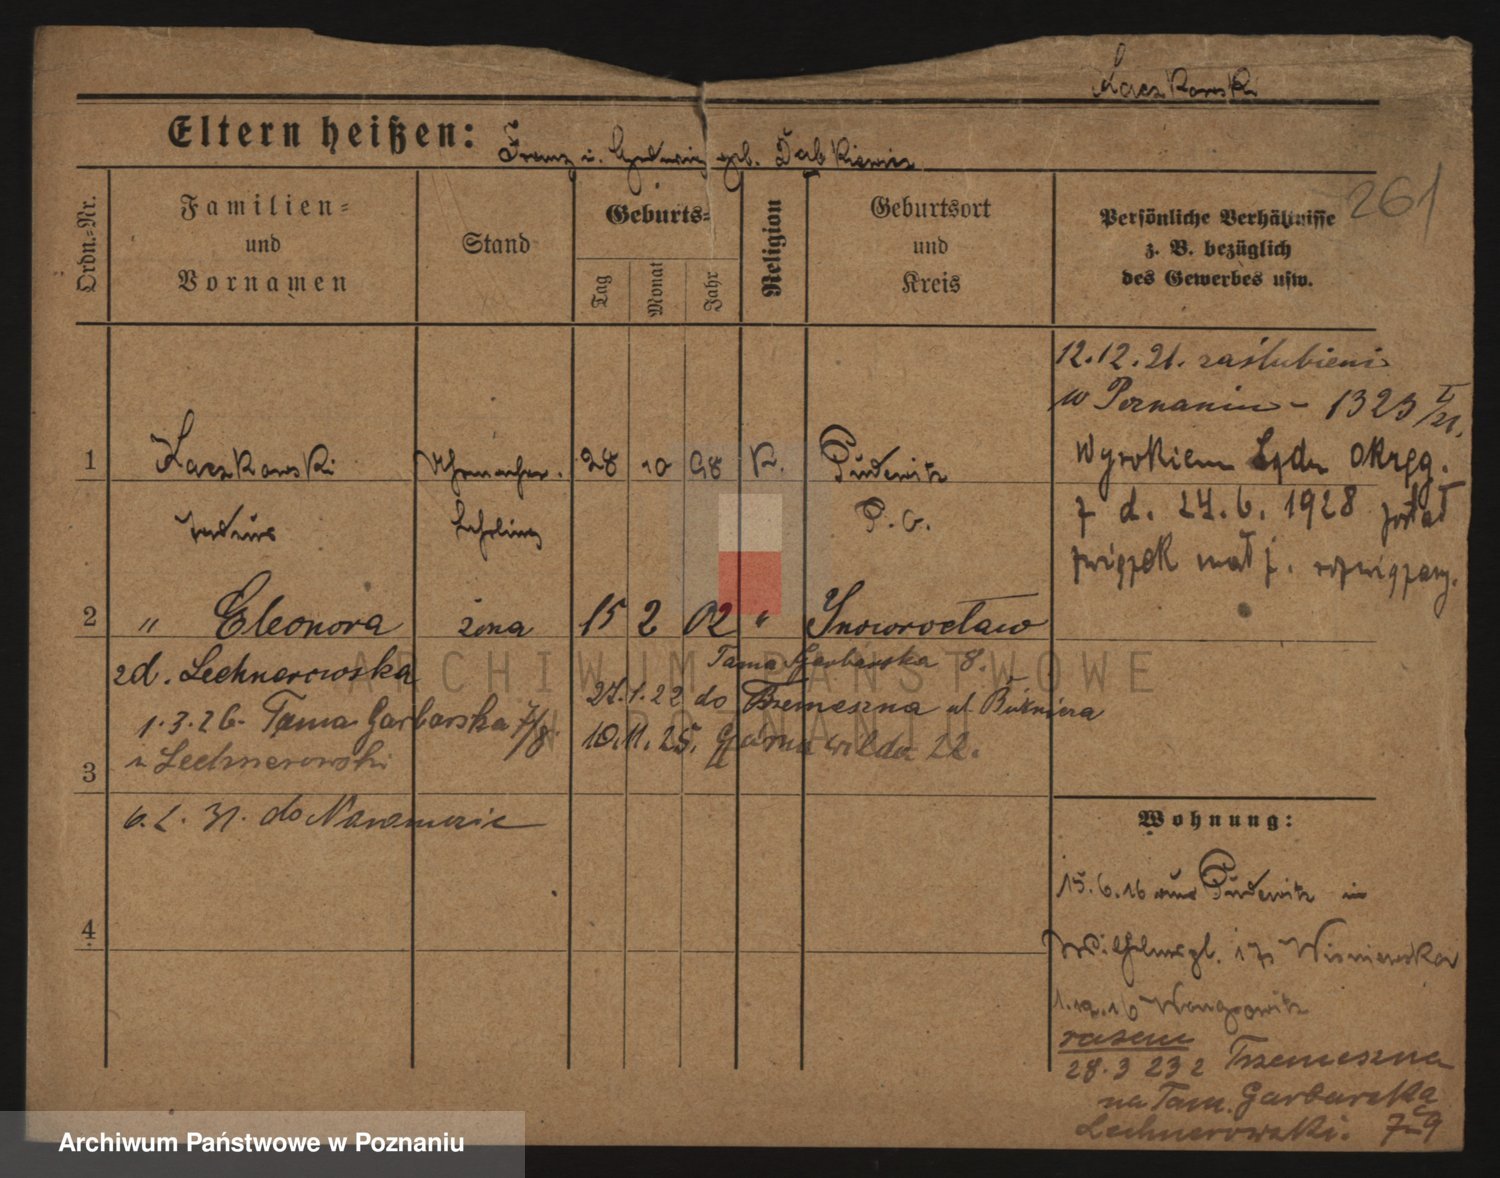 Kaczkowski
Eltern heißen: Franz u. Hedwig geb. Dabkiewicz
261
Ordn.-Nr.
Familien-
und
Vornamen
Stand
Geburts-
Tag
Monat
Jahr
Religion
Geburtsort
und
Kreis
Persönliche Verhältnisse
z. B. bezüglich
des Gewerbes usw.
12.12.21. zaślubieni
w Poznaniu - 1323 I/21.
1 Kaczkowski Uhrmacher. 28 10 98 K. Pudewitz
Wyrokiem Sądu Okręg.
Lehrling P. O.
z d. 27.6.1928 został
związek małż. rozwiązany.
2 " Eleonora żona 15 2 02 " Inowrocław
zd. Lechnerowska Tama Garbarska 8.
27.1.22 do Trzemeszna ul.
1.3.26. Tama Garbarska 7/8
10.11.25. Górna Wilda 22.
u Lechnerowski
3
do Naramowic
4
Wohnung:
15.6.16 aus Pudewitz in
Wilhelmspl. 17 Wisniewska
1.10.16 Wongrowitz
razem
28.3 23 z Trzemeszna
na Tam. Garbarska
Lechnerowski. 7-9
ARCHIWUM PAŃSTWOWE
W POZNANIU
Archiwum Państwowe w Poznaniu